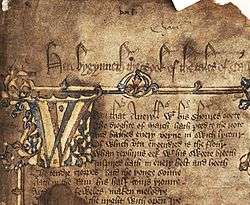 Here bygynneth the Book of the tales of Ca
Whan that Aueryll wt his shoures soote
The droghte of March hath perced to the roote
And bathed euery veyne in swich lycour
Of which vertu engendred is the flour
Whan zephirus eek wt his sweete breeth
Inspired hath in euery holt and heeth
The tendre croppes and the yonge sonne
in the Ram his half cours yronne
foweles maken melodye
the nyght with open Iye